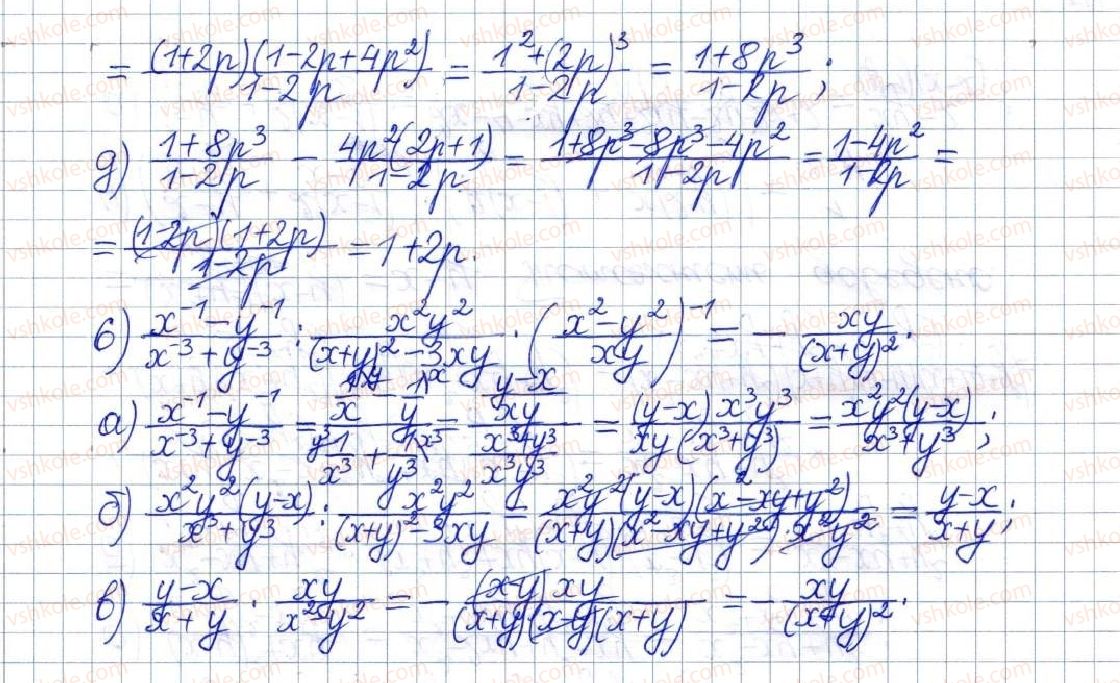 = \frac{(1+2p)(1-2p+4p^2)}{1-2p} = \frac{1^2+(2p)^3}{1-2p} = \frac{1+8p^3}{1-2p};
д) \frac{1+8p^3}{1-2p} - \frac{4p^2(2p+1)}{1-2p} = \frac{1+8p^3-8p^3-4p^2}{1-2p} = \frac{1-4p^2}{1-2p} =
= \frac{(1-2p)(1+2p)}{1-2p} = 1+2p.
6) \frac{x^{-1}-y^{-1}}{x^{-3}+y^{-3}} : \frac{x^2y^2}{(x+y)^2-3xy} \cdot \left(\frac{x^2-y^2}{xy}\right)^{-1} = -\frac{xy}{(x+y)^2}.
а) \frac{x^{-1}-y^{-1}}{x^{-3}+y^{-3}} = \frac{\frac{1}{x}-\frac{1}{y}}{\frac{1}{x^3}+\frac{1}{y^3}} = \frac{\frac{y-x}{xy}}{\frac{x^3+y^3}{x^3y^3}} = \frac{(y-x)x^3y^3}{xy(x^3+y^3)} = \frac{x^2y^2(y-x)}{x^3+y^3};
б) \frac{x^2y^2(y-x)}{x^3+y^3} : \frac{x^2y^2}{(x+y)^2-3xy} = \frac{x^2y^2(y-x)(x^2-xy+y^2)}{(x+y)(x^2-xy+y^2) \cdot x^2y^2} = \frac{y-x}{x+y};
в) \frac{y-x}{x+y} \cdot \frac{xy}{x^2-y^2} = -\frac{(x-y)xy}{(x+y)(x-y)(x+y)} = -\frac{xy}{(x+y)^2}.